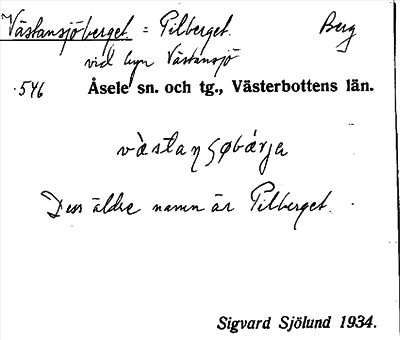 Västansjöberget = Pilberget. Berg
vid byn Västansjö
546 Åsele sn. och tg., Västerbottens län.
Dess äldre namn är Pilberget.
Sigvard Sjölund 1934.